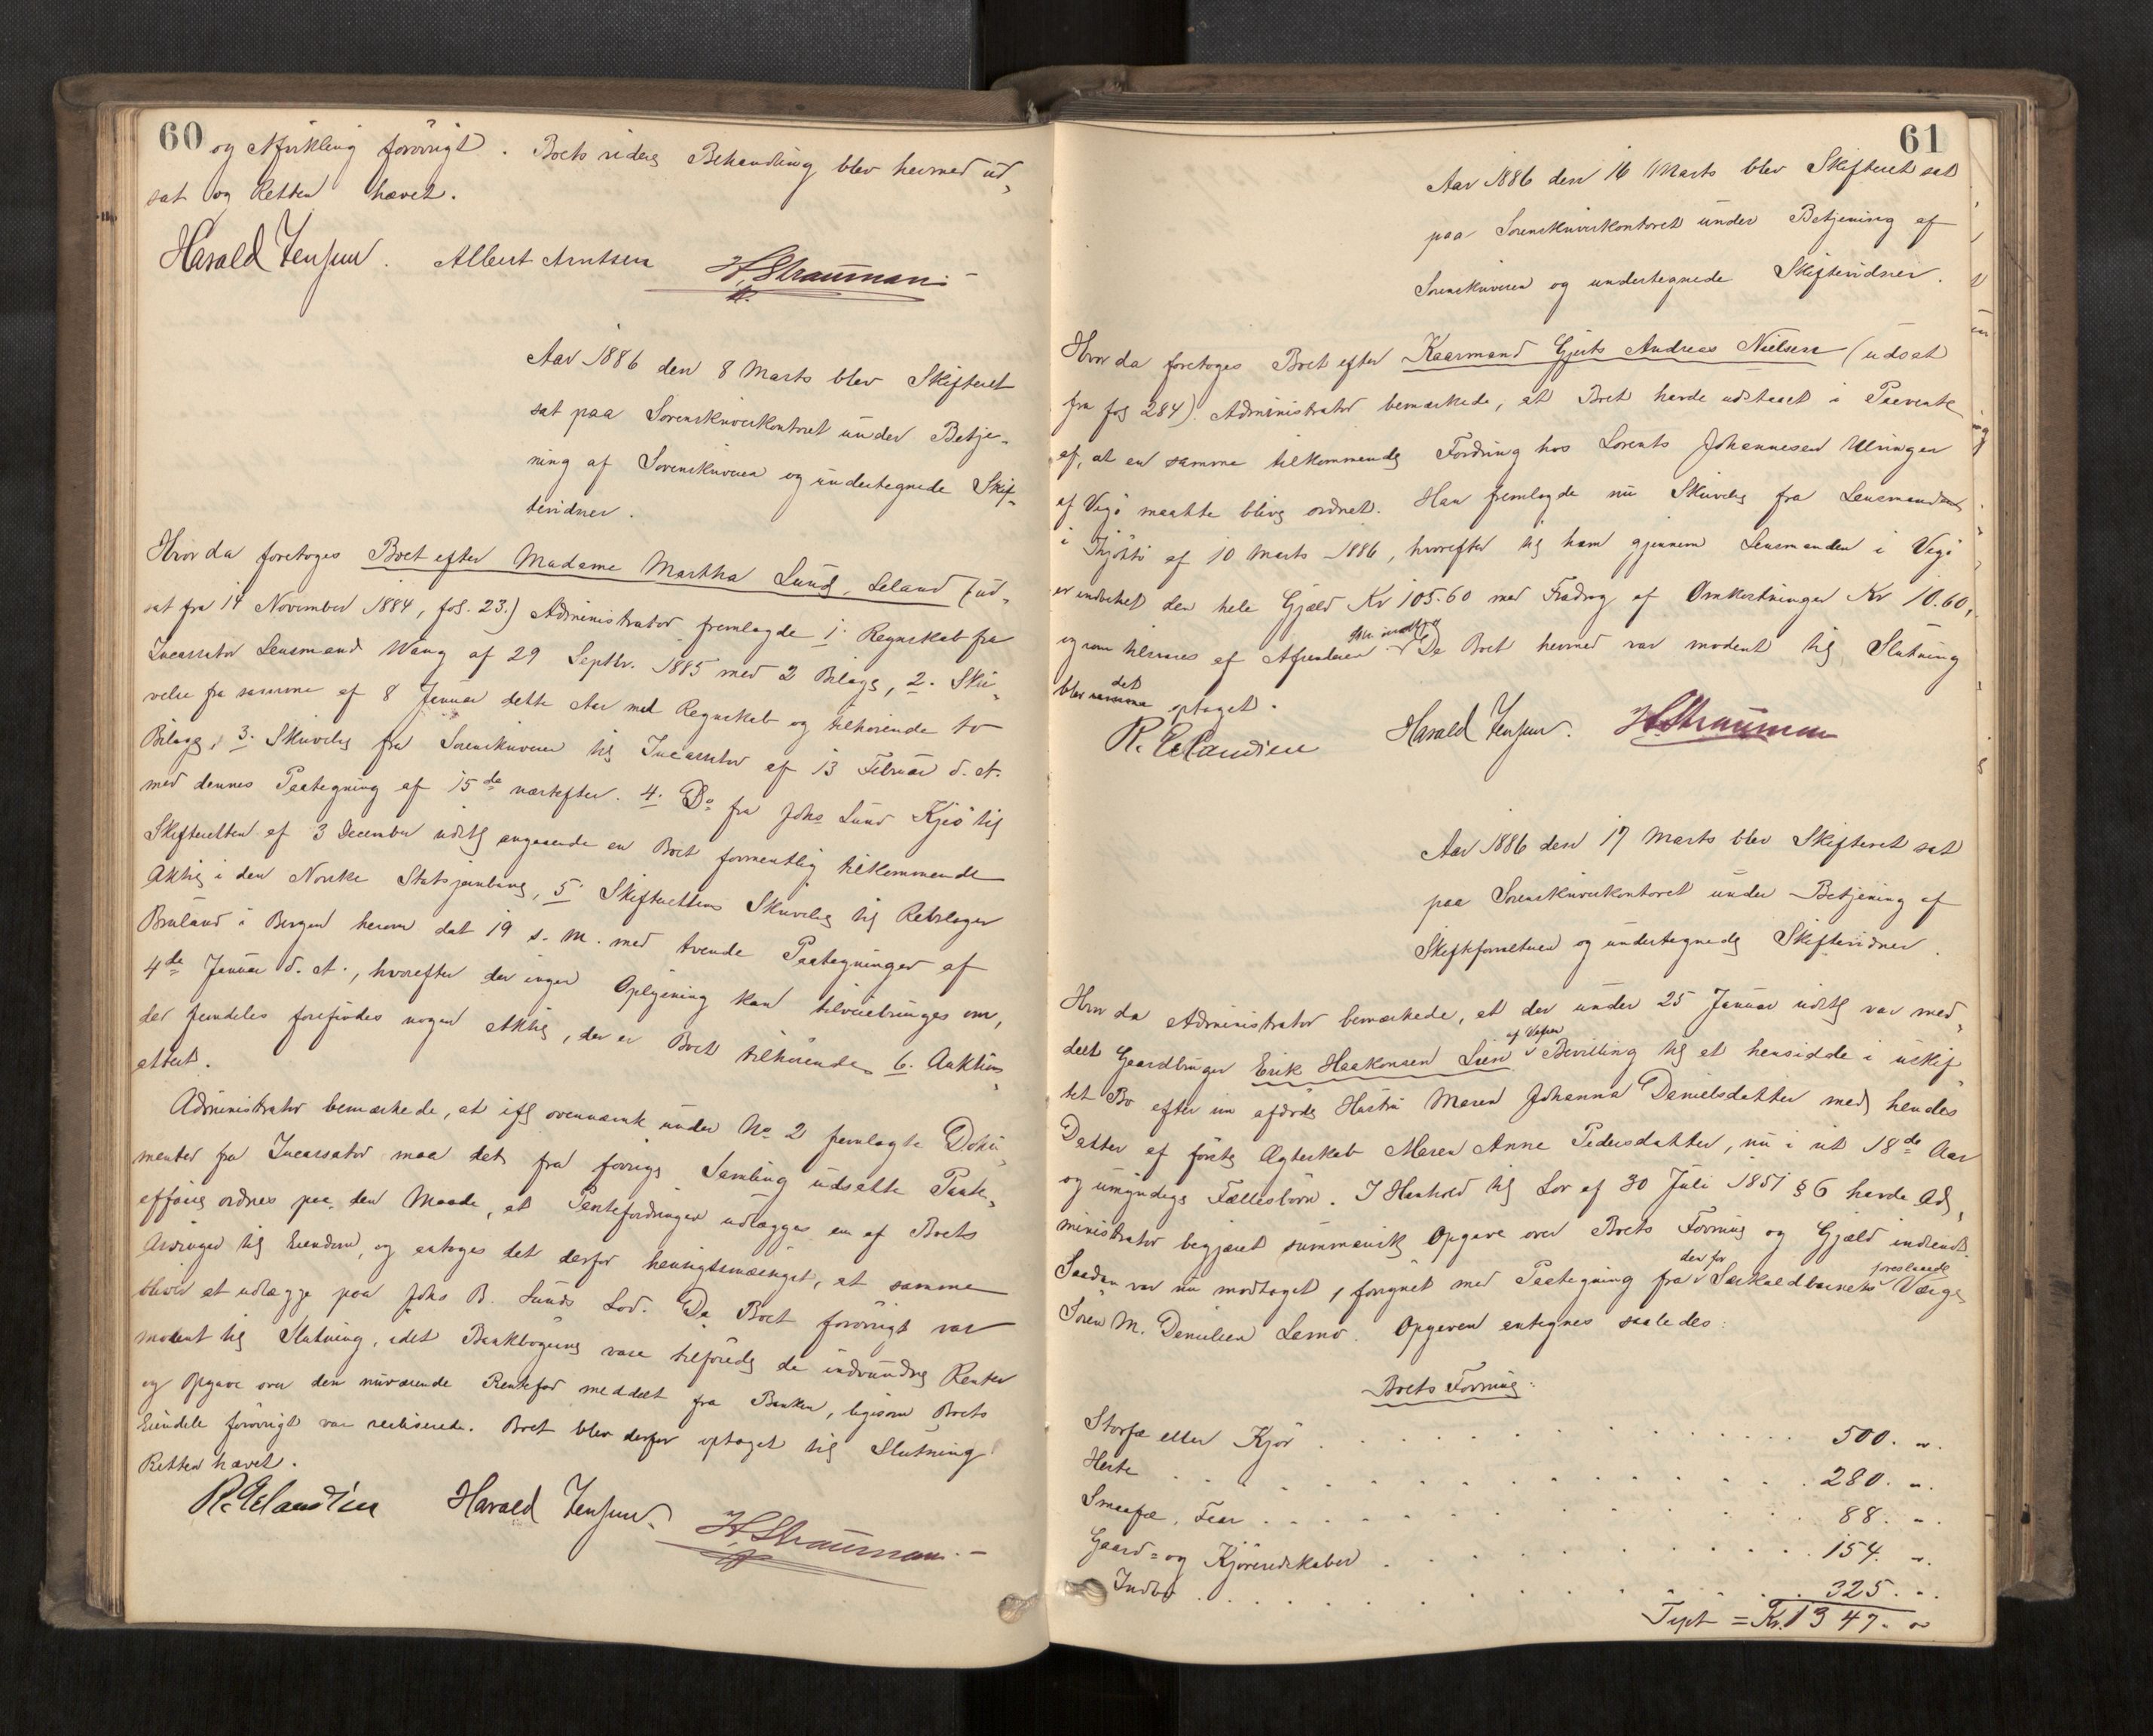 60
og Afvikling forövrigt. Boets videre Behandling blev hermed ud„
sat og Retten hævet.
Harald Jensen. Albert Arntsen H. Straumann.
Aar 1886 den 8 Marts blev Skifteret
sat paa Sorenskriverkontoret under Betje„
ning af Sorenskriveren og undertegnede Skif„
tevidner.
Hvor da foretoges Boet efter Madame Martha Lund, Leland (ud„
sat fra 14 November 1884, fol. 23.) Administrator fremlagde 1. Regnskab fra
Incassator Lensmand Wang af 29 Septbr. 1885 med 2 Bilage, 2. Skri„
velse fra samme af 8 Januar dette Aar med Regnskab og tilhörende to
Bilage, 3. Skrivelse fra Sorenskriveren til Incassator af 13 Februar d. A.
med dennes Paategning af 15de næstefter. 4. Do fra Johs Lund Kjeö til
Skifteretten af 3 December sidstl angaaende en Boet formentlig tilkommende
Aktie i den Norske Statsjernbane, 5. Skifterettens Skrivelse til Rebslager
Bruland i Bergen herom dat 19 s. M. med tvende Paategninger af
4de Januar d. A., hvorefter der ingen Oplysning kan tilveiebringes om,
der fremdeles forefindes nogen Aktie, der er Boet tilhörende, 6. Auktions„
attest.
Administrator bemærkede, at iflg ovennævnte under No 2 fremlagte Doku„
menter fra Incassator maa det fra forrige Samling udsatte Paate„
affære ordnes paa den Maade, at Pantefordringen udlægges en af Boets
Arvinger til Eiendom, og antoges det derfor hensigtsmæssigst, at samme
bliver at udlægge paa Johs B. Lunds Lod. Da Boet forövrigt var
modent til Slutning, idet Bankbögerne vare tilförede de indvundne Renter
og Opgave over den nuværende Rentefod meddelt fra Banken, ligesom Boets
Eiendele forövrigt var realiserede. Boet blev derfor optaget til Slutning
Retten hævet.
R. Erlandsen Harald Jensen. H. Straumann.
61
Aar 1886 den 16 Marts blev Skifteret sat
paa Sorenskriverkontoret under Betjening af
Sorenskriveren og undertegnede Skiftevidner.
Hvor da foretoges Boet efter Kaarmand Gjerts Andreas Nielsen (udsat
fra fol 284). Administrator bemærkede, at Boet havde udstaaet i Paavente
af, at en samme tilkommende Fordring hos Lorents Johannesen Ulvinger
af Vegö maatte blive ordnet. Han fremlagde nu Skrivelse fra Lensmanden
i Thjöttö af 10 Marts 1886, hvorefter til ham gjennem Lensmanden i Vegö
er indbetalt den hele Gjæld Kr 105.60 med Fradrag af Omkostninger Kr 10.60,
og som tilsvares af Afsenderen Da Boet hermed var modent til Slutning
blev det optaget.
R. Erlandsen Harald Jensen. H. Straumann
Aar 1886 den 17 Marts blev Skifteret sat
paa Sorenskriverkontoret under Betjening af
Skifteforvalteren og undertegnede Skiftevidner.
Hvor da Administrator bemærkede, at der under 25 Januar sidstl var med„
delt Gaardbruger Erik Haakonsen Lien af Vefsen Bevilling til at hensidde i uskif„
tet Bo efter sin afdöde Hustru Maren Johanna Danielsdatter med hendes
Datter af förste Ægteskab Maren Anne Pedersdatter, nu i sit 18de Aar
og umyndige Fællesbörn. I Henhold til Lov af 30 Juli 1851 § 6 havde Ad„
ministrator begjæret summarisk Opgave over Boets Formue og Gjæld indsendt.
Saadan var nu modtaget, forsynet med Paategning fra den for Særkuldbarnets foreslaaede Værge
Sören M. Danielsen Lemo. Opgaven antegnes saaledes:
Boets Formue:
Storfæ eller Kjör . . . 500. „.
Heste . . . 280. „.
Smaafæ, Fear . . . 88. „.
Gaard= og Kjöreredskaber . . . 154. „.
Indbo . . . 325. „.
Tspt = Kr. 1347. „